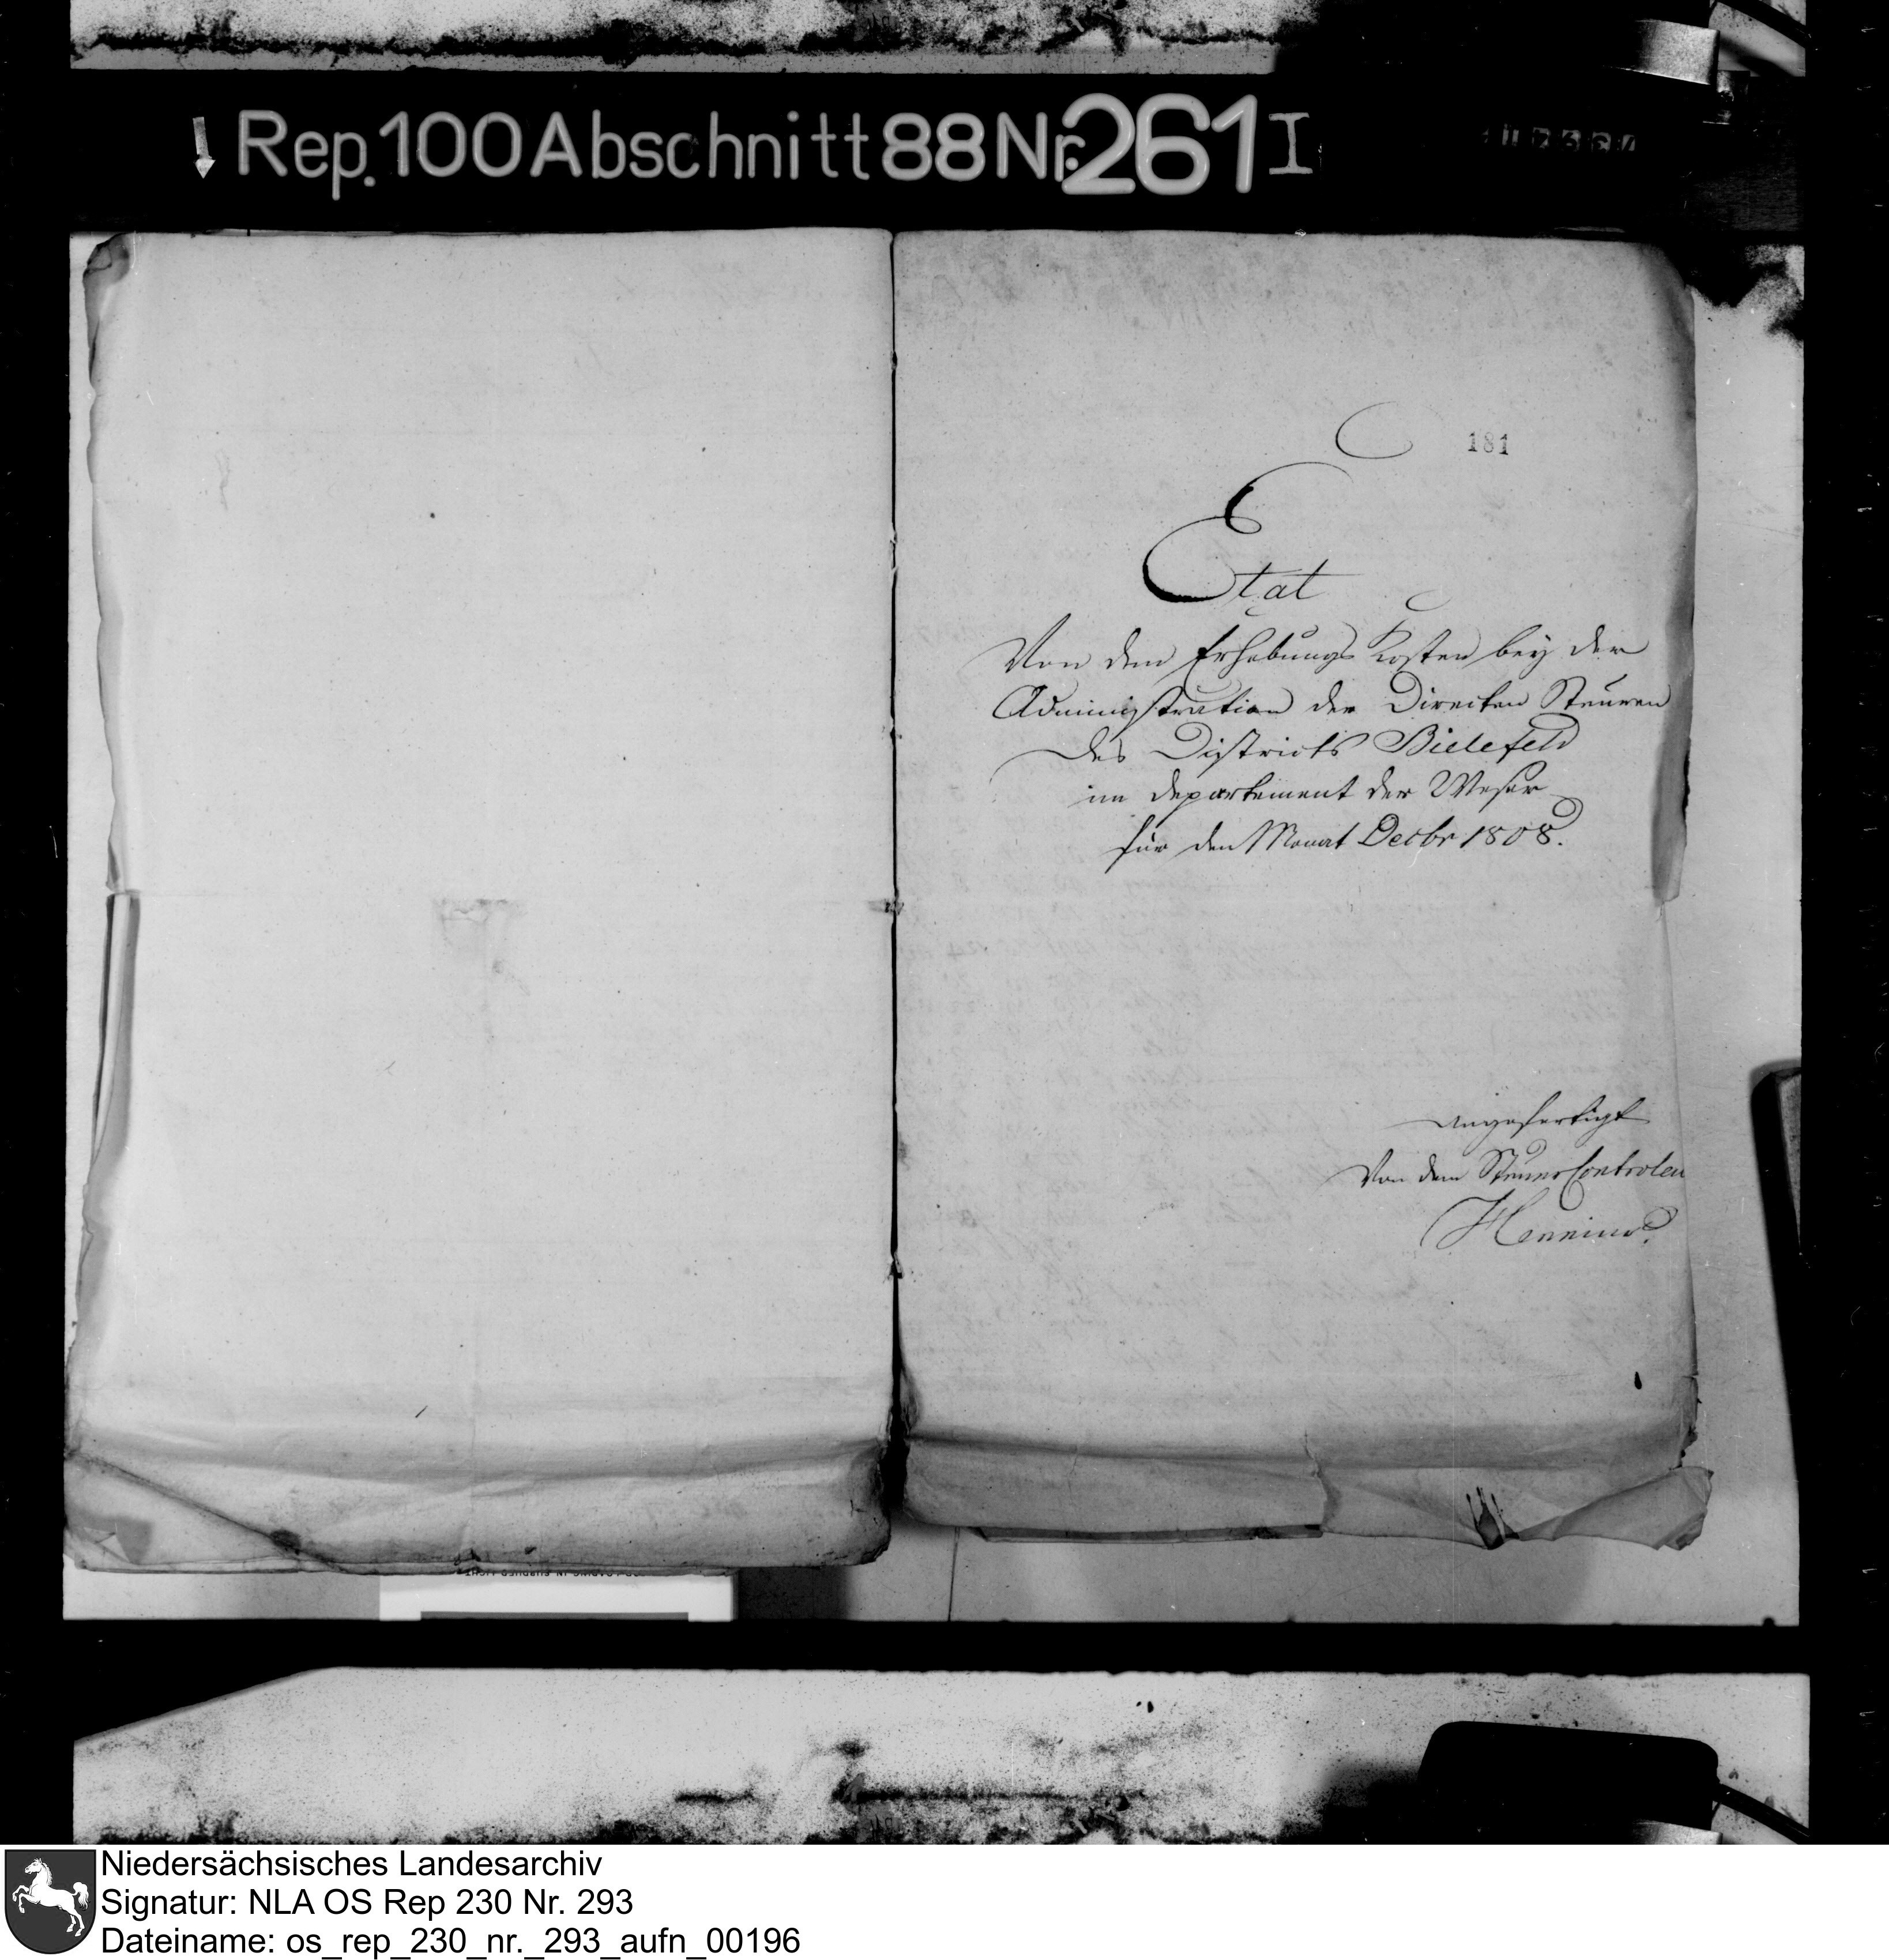 Rep. 100 Abschnitt 88 Nr. 261 I
181
Etat
Von den Erhebungs Kosten bey der
Administration der Direcken Steuren
des Districts Bielefeld
im Departement der Weser
für den Monat Decbr 1808.
angefertigt
Von dem Steuer Controleu
Niedersächsisches Landesarchiv
Signatur: NLA OS Rep 230 Nr. 293
Dateiname: os_rep_230_nr._293_aufn_00196